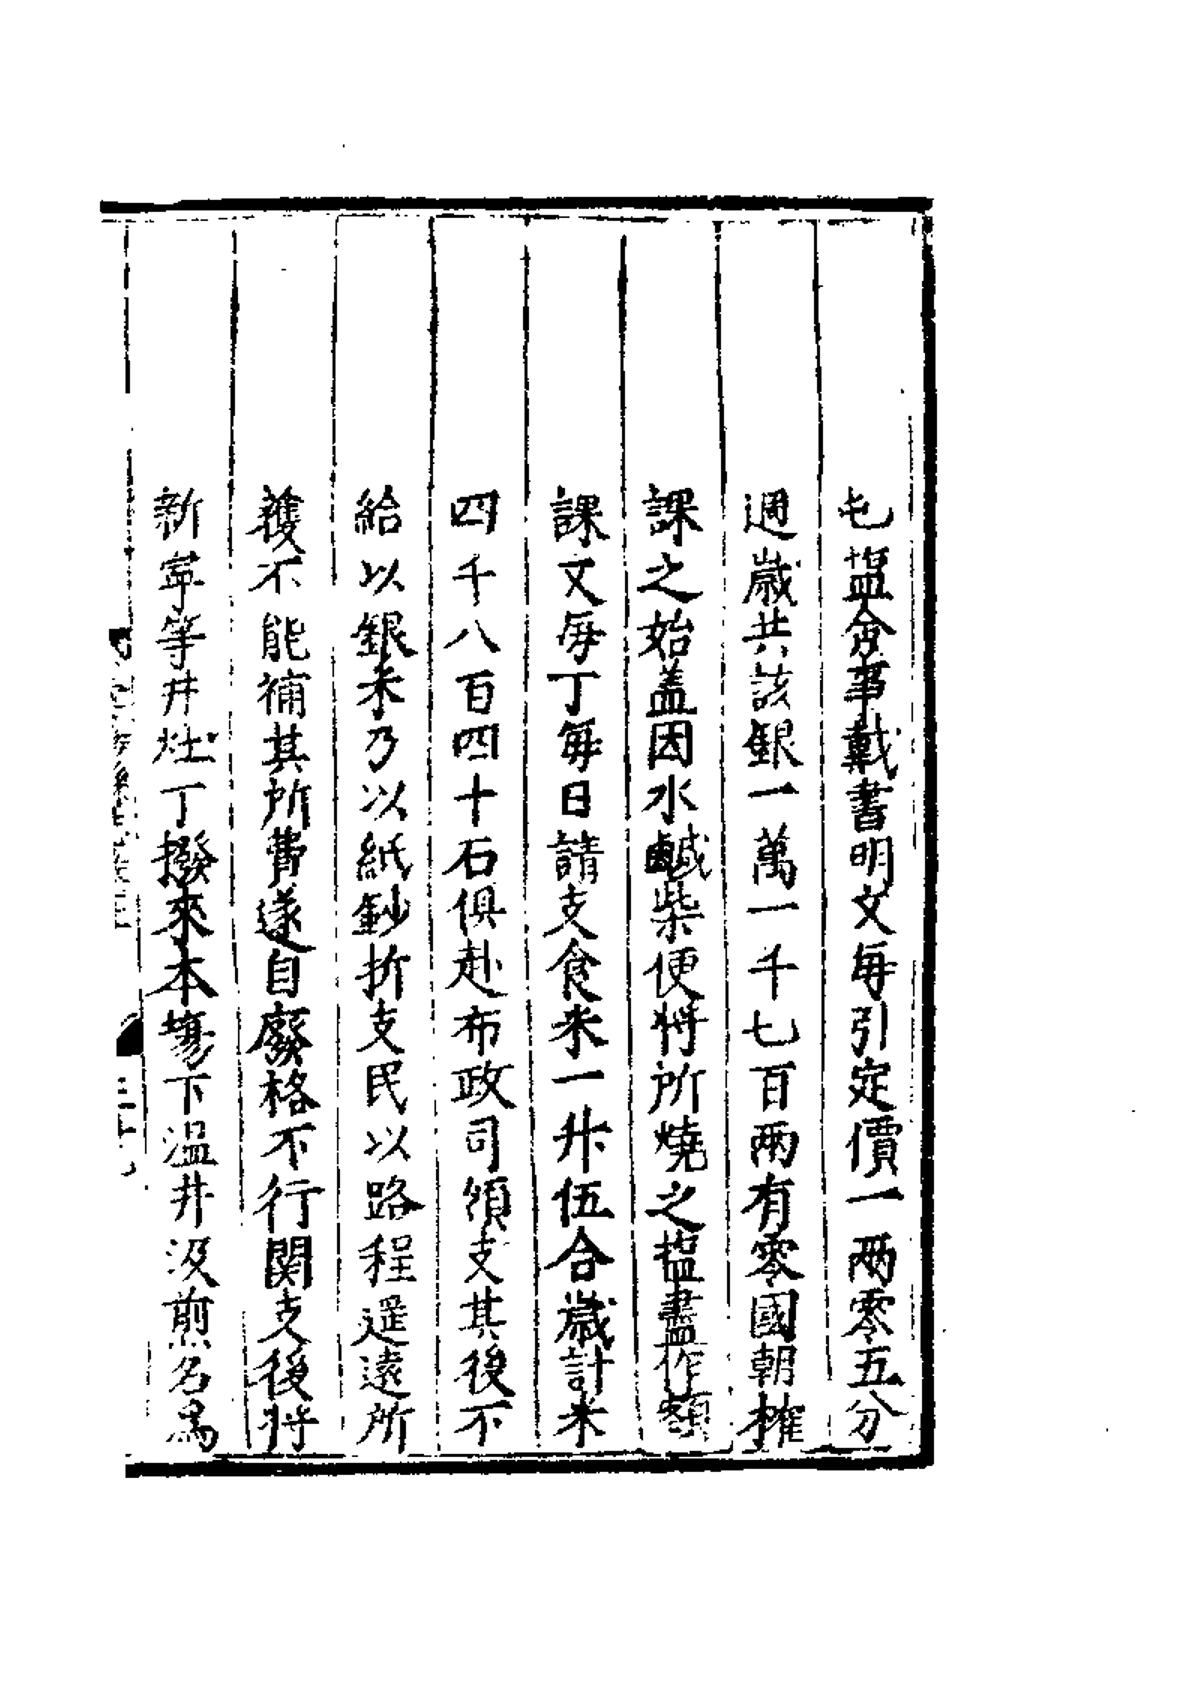 屯塩僉事戴書明文每引定價一两零五分
週歲共該銀一萬一千七百两有零國朝榷
課之始盖因水鹹柴便將所燒之塩盡作額
課文每丁每日請支食米一升伍合歲計米
四千八百四十石俱赴布政司領支其後不
給以銀米乃以紙鈔折支民以路程遥遠所
獲不能補其所費遂自廢格不行関支後将
新寧等井灶丁撥來本場下温井汲煎名爲
三十九